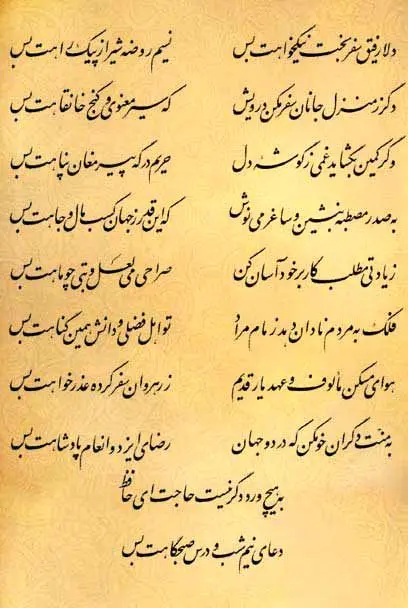 دلا رفیق سفر بخت نیکخواهت بس نسیم روضه شیراز پیک راهت بس
دگر ز منزل جانان سفر مکن درویش که سیر معنوی و کنج خانقاهت بس
وگر کمین بگشاید غمی ز گوشه دل حریم درگه پیر مغان پناهت بس
به صدر مصطبه بنشین و ساغر می نوش که این قدر ز جهان کسب مال و جاهت بس
زیادتی مطلب کار بر خود آسان کن صراحی می لعل و بتی چو ماهت بس
فلک به مردم نادان دهد زمام مراد تو اهل فضلی و دانش همین گناهت بس
هوای مسکن مألوف و عهد یار قدیم ز رهروان سفر کرده عذر خواهت بس
به منت دگران خو مکن که در دو جهان رضای ایزد و انعام پادشاهت بس
به هیچ ورد دگر نیست حاجت ای حافظ
دعای نیم شب و درس صبحگاهت بس